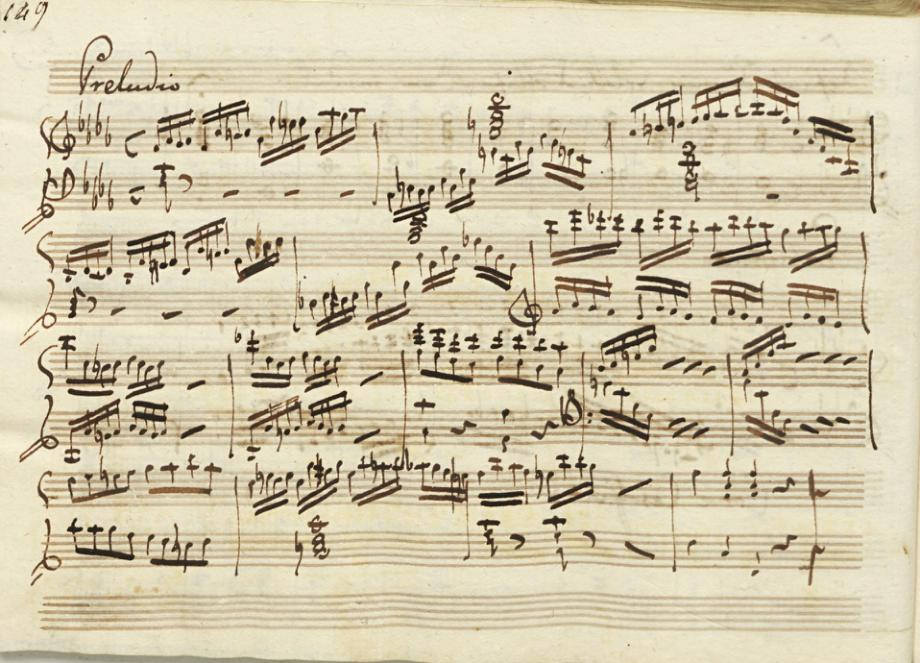 149
Preludio